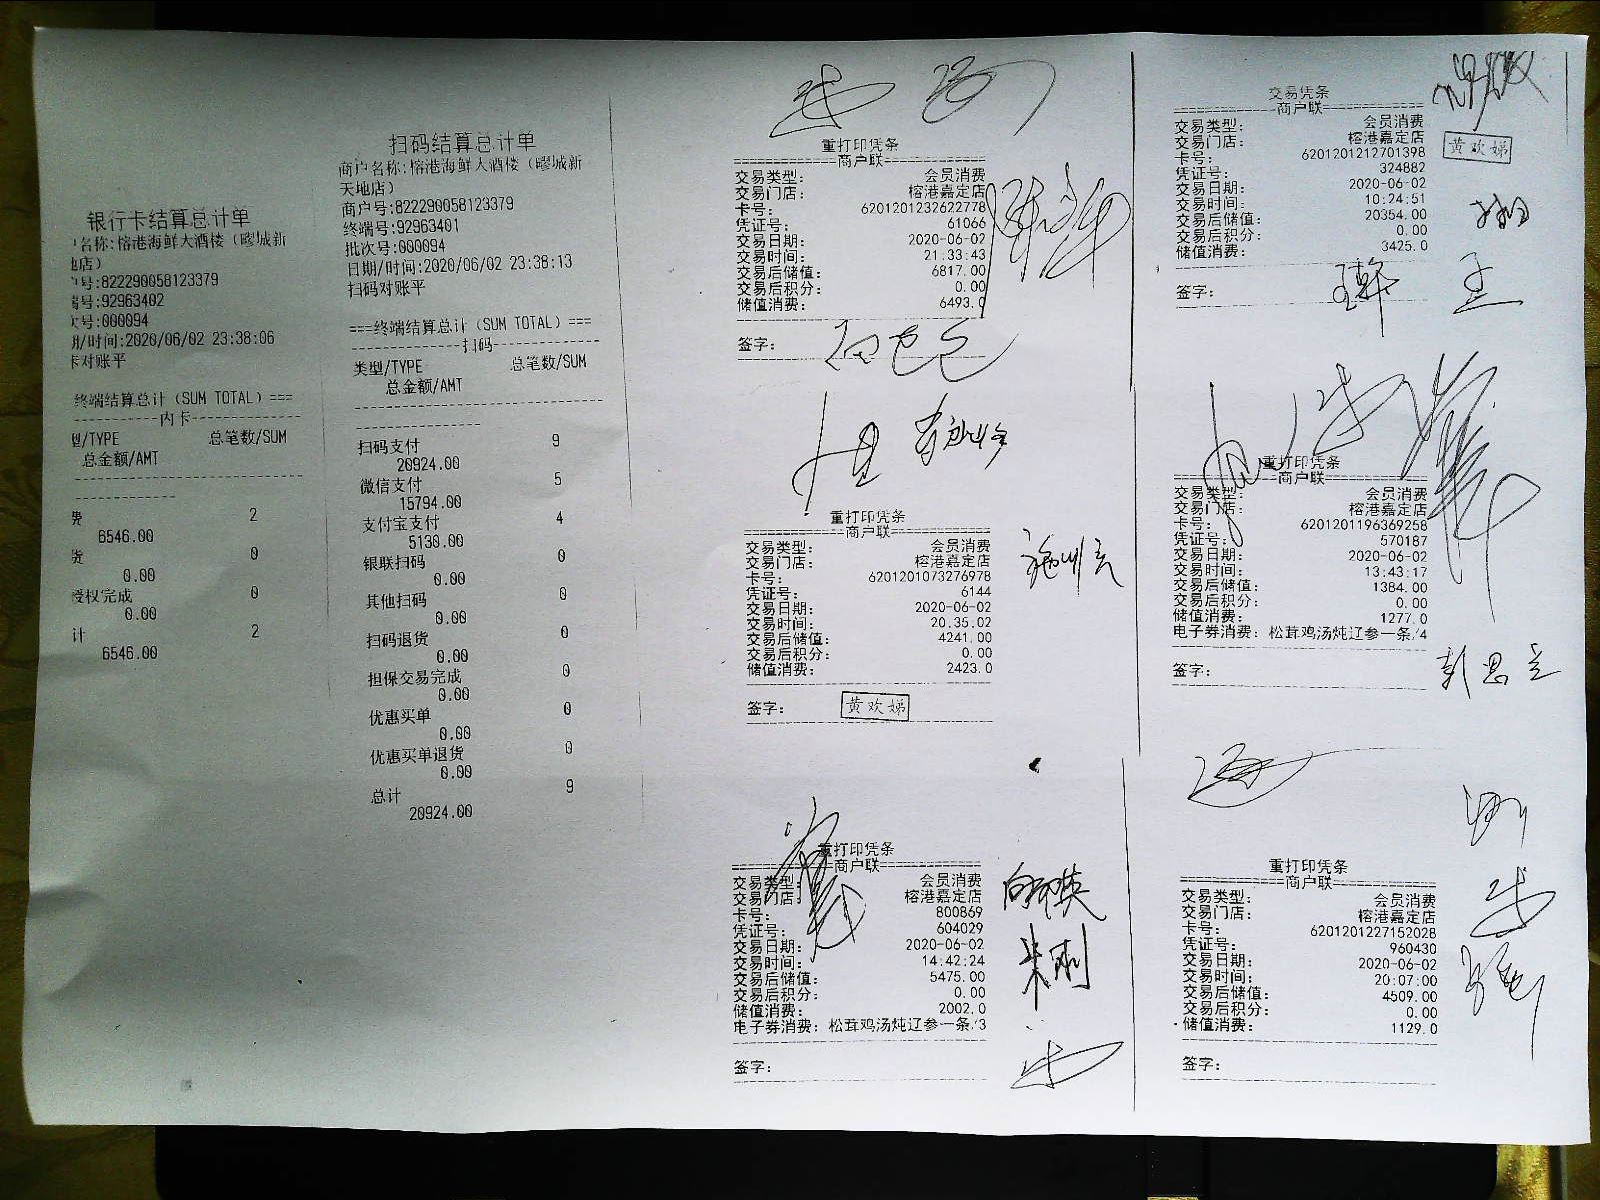 银行卡结算总计单
名称:榕港海鲜大酒楼（疁城新
店）
号:822290058123379
号:92963402
号:000094
/时间:2020/06/02 23:38:06
卡对账平
终端结算总计（SUM TOTAL）===
----------内卡----------
型/TYPE 总笔数/SUM
总金额/AMT
费 2
6546.00
货 0
0.00
授权完成 0
0.00
计 2
6546.00
扫码结算总计单
商户名称:榕港海鲜大酒楼（疁城新
天地店）
商户号:822290058123379
终端号:92963401
批次号:000094
日期/时间:2020/06/02 23:38:13
扫码对账平
===终端结算总计（SUM TOTAL）===
----------扫码----------
类型/TYPE 总笔数/SUM
总金额/AMT
扫码支付 9
20924.00
微信支付 5
15794.00
支付宝支付 4
5130.00
银联扫码 0
0.00
其他扫码 0
0.00
扫码退货 0
0.00
担保交易完成 0
0.00
优惠买单 0
0.00
优惠买单退货 0
0.00
总计 9
20924.00
重打印凭条
商户联
交易类型: 会员消费
交易门店: 榕港嘉定店
卡号: 6201201232622778
凭证号: 61066
交易日期: 2020-06-02
交易时间: 21:33:43
交易后储值: 6817.00
交易后积分: 0.00
储值消费: 6493.0
签字:
重打印凭条
商户联
交易类型: 会员消费
交易门店: 榕港嘉定店
卡号: 6201201073276978
凭证号: 6144
交易日期: 2020-06-02
交易时间: 20.35.02
交易后储值: 4241.00
交易后积分: 0.00
储值消费: 2423.0
签字: 黄欢娣
重打印凭条
商户联
交易类型: 会员消费
交易门店: 榕港嘉定店
卡号: 800869
凭证号: 604029
交易日期: 2020-06-02
交易时间: 14:42:24
交易后储值: 5475.00
交易后积分: 0.00
储值消费: 2002.0
电子券消费: 松茸鸡汤炖辽参一条/3
签字:
交易凭条
商户联
交易类型: 会员消费
交易门店: 榕港嘉定店
卡号: 6201201212701398
凭证号: 324882
交易日期: 2020-06-02
交易时间: 10:24:51
交易后储值: 20354.00
交易后积分: 0.00
储值消费: 3425.0
黄欢娣
签字:
重打印凭条
商户联
交易类型: 会员消费
交易门店: 榕港嘉定店
卡号: 6201201196369258
凭证号: 570187
交易日期: 2020-06-02
交易时间: 13:43:17
交易后储值: 1384.00
交易后积分: 0.00
储值消费: 1277.0
电子券消费: 松茸鸡汤炖辽参一条/4
签字:
重打印凭条
商户联
交易类型: 会员消费
交易门店: 榕港嘉定店
卡号: 6201201227152028
凭证号: 960430
交易日期: 2020-06-02
交易时间: 20:07:00
交易后储值: 4509.00
交易后积分: 0.00
储值消费: 1129.0
签字: